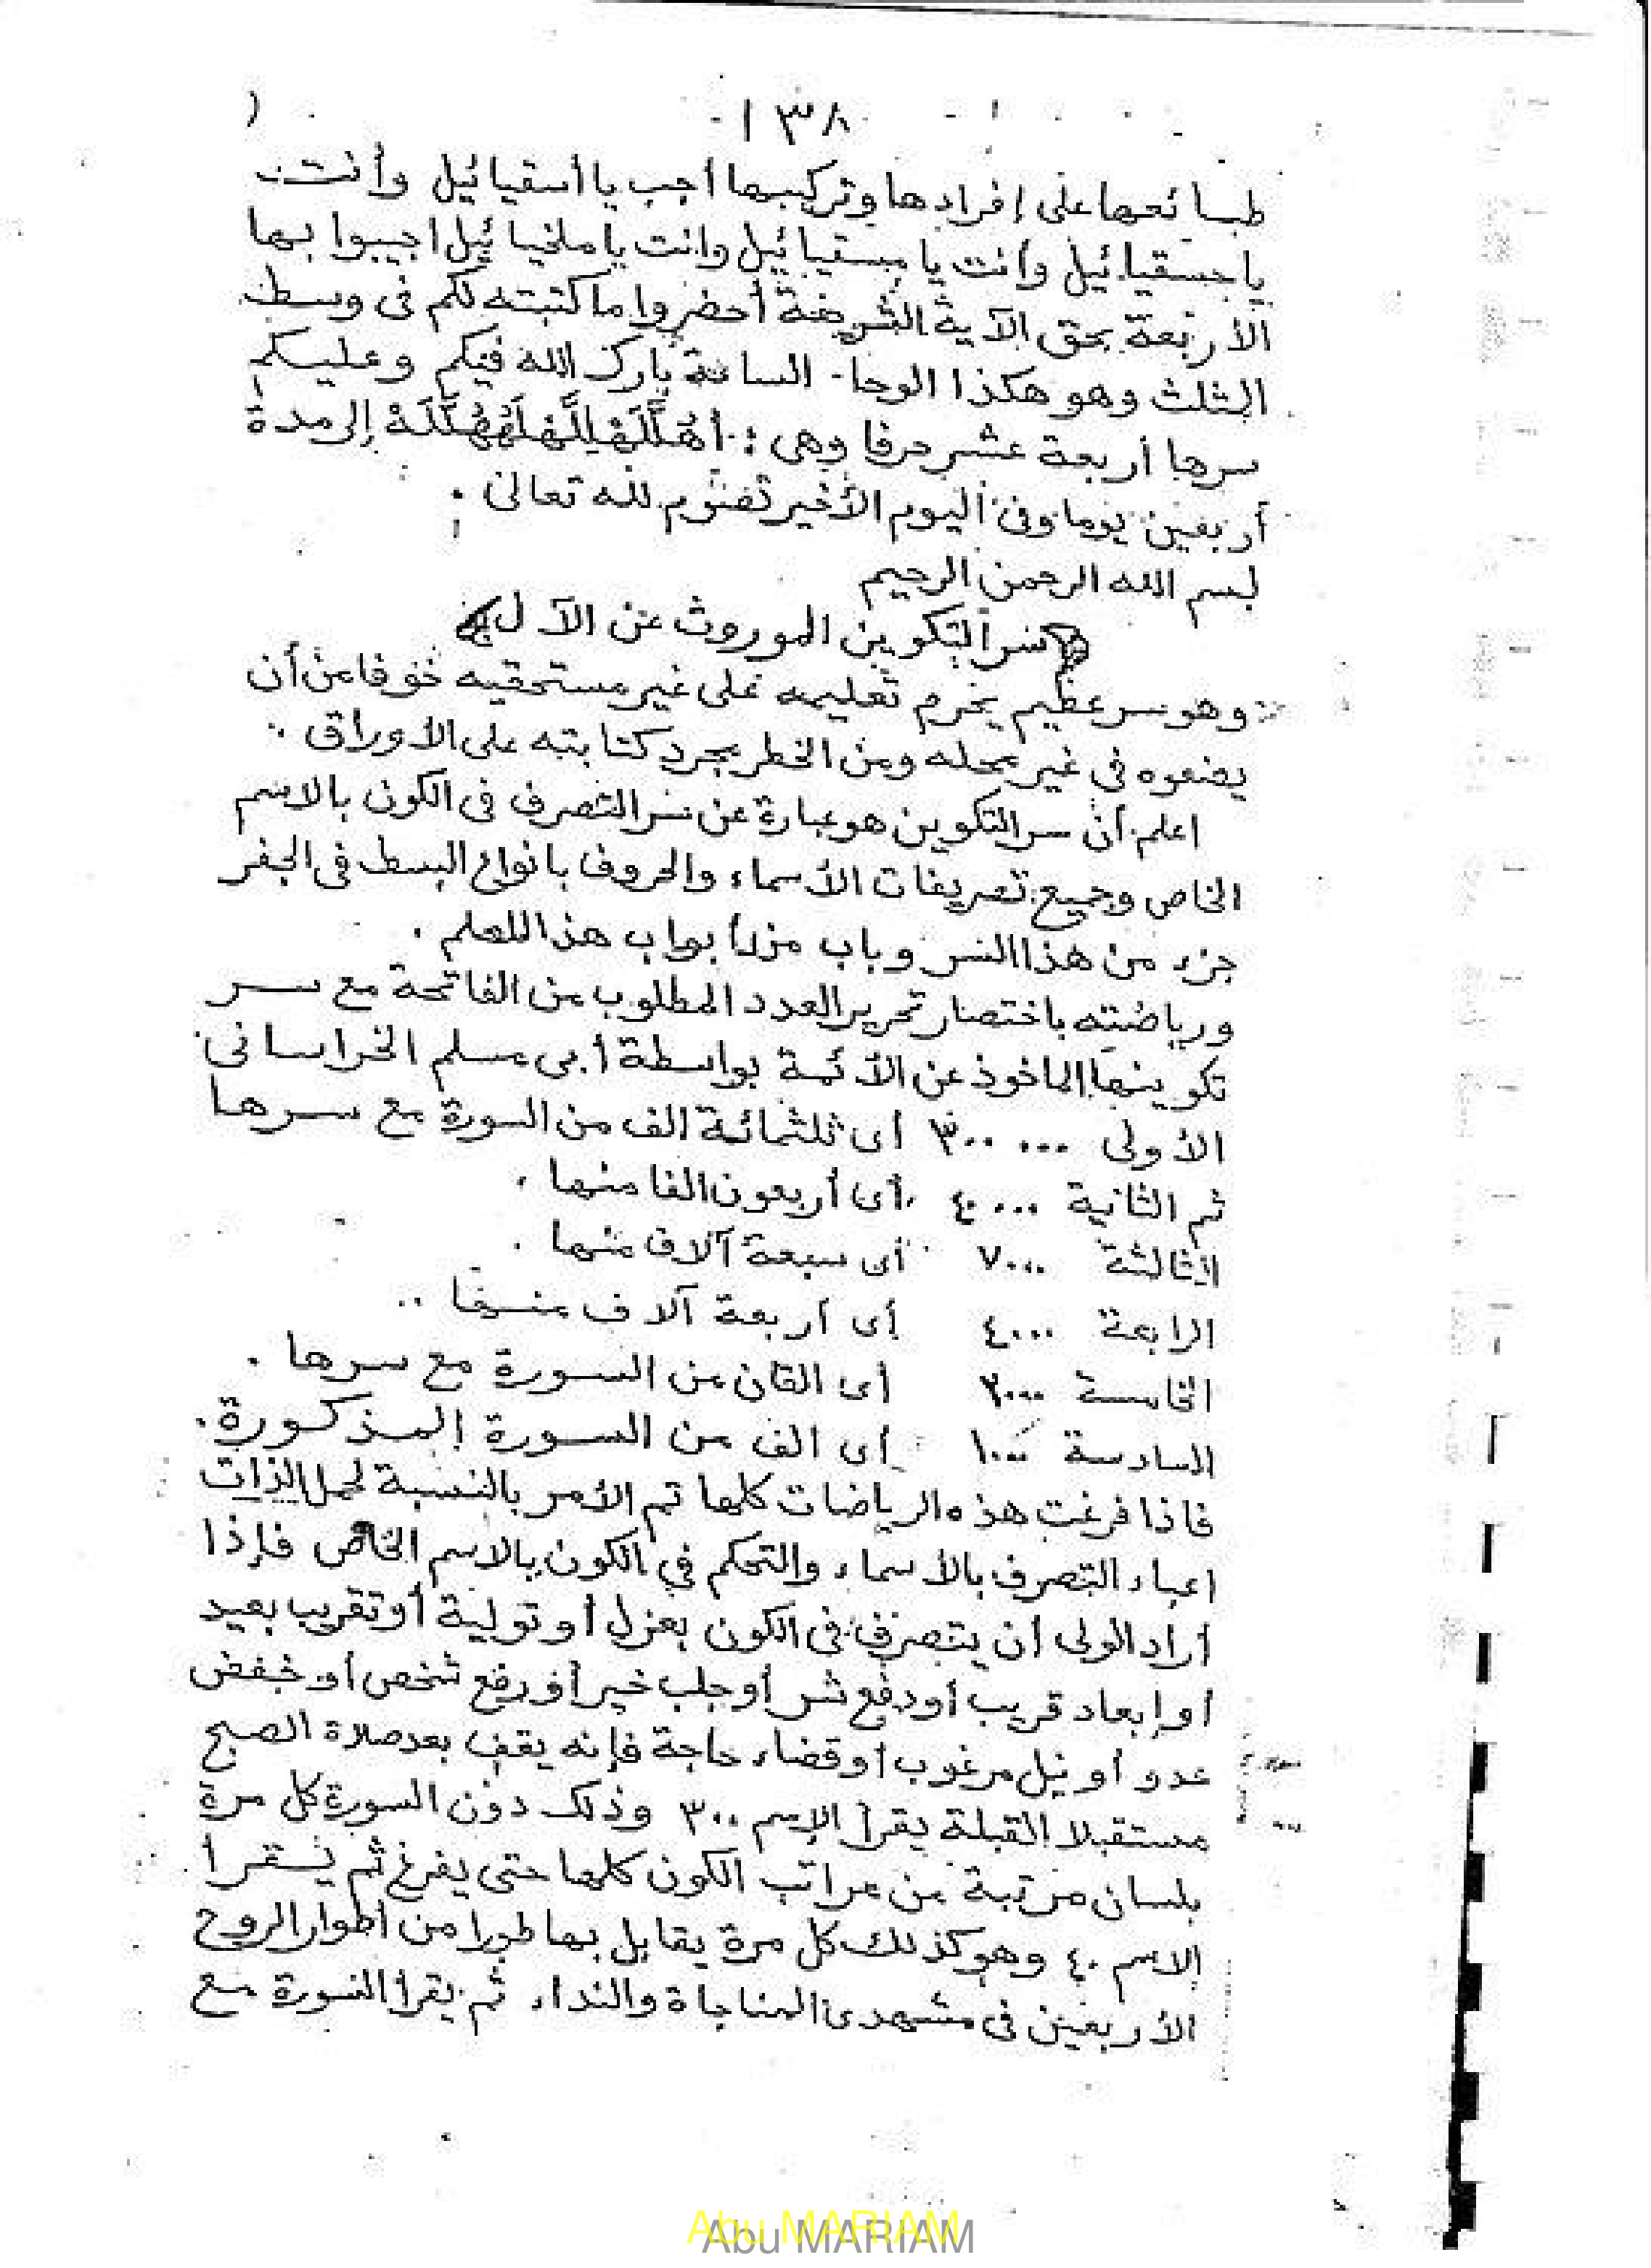 ١٣٨
طبائعها على إفرادها وتركيبها أجب يا أسقيائيل وأنت
يا جسقيائيل وأنت يا مسقيائيل وانت يا ملخيائيل اجيبوا بها
الأربعة بحق الآية الشريفة أحضروا ما كتبته لكم فى وسط
المثلث وهو هكذا الوحا - الساعة بارك الله فيكم وعليكم
سرها أربعة عشر حرفا وهى : إلى مدة
أربعين يوما وفى اليوم الأخير تصوم لله تعالى .
بسم الله الرحمن الرحيم
سر التكوين الموروث عن الآل
وهو سر عظيم يحرم تعليمه على غير مستحقيه خوفا من أن
يضعوه فى غير محله ومن الخطر مجرد كتابته على الأوراق .
اعلم أن سر التكوين هو عبارة عن سر التصرف فى الكون بالاسم
الخاص وجميع تصريفات الأسماء والحروف بانواع البسط فى الجفر
جزء من هذا السر وباب من أبواب هذا العلم .
ورياضته باختصار تحرير العدد المطلوب من الفاتحة مع سر
تكوينها الماخوذ عن الأئمة بواسطة أبى مسلم الخراسانى
الأولى ٣٠٠٠٠٠ أى ثلثمائة الف من السورة مع سرها
ثم الثانية ٤٠٠٠٠ أى أربعون الفا منها .
الثالثة ٧٠٠٠ أى سبعة آلاف منها .
الرابعة ٤٠٠٠ أى أربعة آلاف منها ..
الخامسة ٢٠٠٠ أى الفان من السورة مع سرها .
السادسة ١٠٠٠ أى الف من السورة المذكورة .
فاذا فرغت هذه الرياضات كلها تم الأمر بالنسبة لحمل الذات
اعباء التصرف بالأسماء والتحكم في الكون بالاسم الخاص فإذا
أراد الولى أن يتصرف فى الكون بعزل أو تولية أو تقريب بعيد
أو إبعاد قريب أو دفع شر أو جلب خير أو رفع شخص أو خفض
عدو أو نيل مرغوب أو قضاء حاجة فإنه يقف بعد صلاة الصبح
مستقبلا القبلة يقرأ الإسم ٣٠٠ وذلك دون السورة كل مرة
بلسان مرتبة من مراتب الكون كلها حتى يفرغ ثم
الاسم ٤٠ وهو كذلك كل مرة يقابل بها طورا من أطوار الروح
الأربعين فى مشهدى المناجاة والنداء ثم يقرأ السورة مع
Abu MARIAM
Abu MARIAM